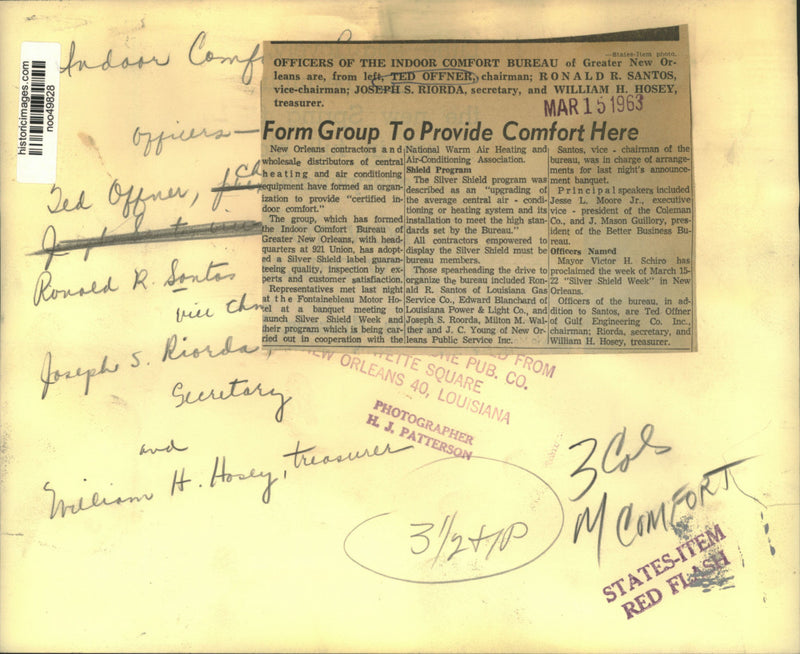 historicimages.com
noo49828
Indoor Comf
officers—
Ted Offner,
Ronald R. Santos
vice chm
Joseph S. Riorda,
Secretary
and
William H. Hosey, treasurer
—States-Item photo.
OFFICERS OF THE INDOOR COMFORT BUREAU of Greater New Or-
leans are, from left, TED OFFNER, chairman; RONALD R. SANTOS,
vice-chairman; JOSEPH S. RIORDA, secretary, and WILLIAM H. HOSEY,
treasurer.
MAR 15 1963
Form Group To Provide Comfort Here
New Orleans contractors and
wholesale distributors of central
heating and air conditioning
equipment have formed an organ-
ization to provide "certified in-
door comfort."
The group, which has formed
the Indoor Comfort Bureau of
Greater New Orleans, with head-
quarters at 921 Union, has adopt-
ed a Silver Shield label guaran-
teeing quality, inspection by ex-
perts and customer satisfaction.
Representatives met last night
at the Fontainebleau Motor Ho-
tel at a banquet meeting to
launch Silver Shield Week and
their program which is being car-
ried out in cooperation with the
National Warm Air Heating and
Air-Conditioning Association.
Shield Program
The Silver Shield program was
described as an "upgrading of
the average central air - condi-
tioning or heating system and its
installation to meet the high stan-
dards set by the Bureau."
All contractors empowered to
display the Silver Shield must be
bureau members.
Those spearheading the drive to
organize the bureau included Ron-
ald R. Santos of Louisiana Gas
Service Co., Edward Blanchard of
Louisiana Power & Light Co., and
Joseph S. Roorda, Milton M. Wal-
ther and J. C. Young of New Or-
leans Public Service Inc.
Santos, vice - chairman of the
bureau, was in charge of arrange-
ments for last night's announce-
ment banquet.
Principal speakers included
Jesse L. Moore Jr., executive
vice - president of the Coleman
Co., and J. Mason Guillory, pres-
ident of the Better Business Bu-
reau.
Officers Named
Mayor Victor H. Schiro has
proclaimed the week of March 15-
22 "Silver Shield Week" in New
Orleans.
Officers of the bureau, in ad-
dition to Santos, are Ted Offner
of Gulf Engineering Co. Inc.,
chairman; Riorda, secretary, and
William H. Hosey, treasurer.
FROM
PUB. CO.
SQUARE
NEW ORLEANS 40, LOUISIANA
PHOTOGRAPHER
H. J. PATTERSON
3 Cols
M COMFORT
3 1/2
STATES-ITEM
RED FLASH